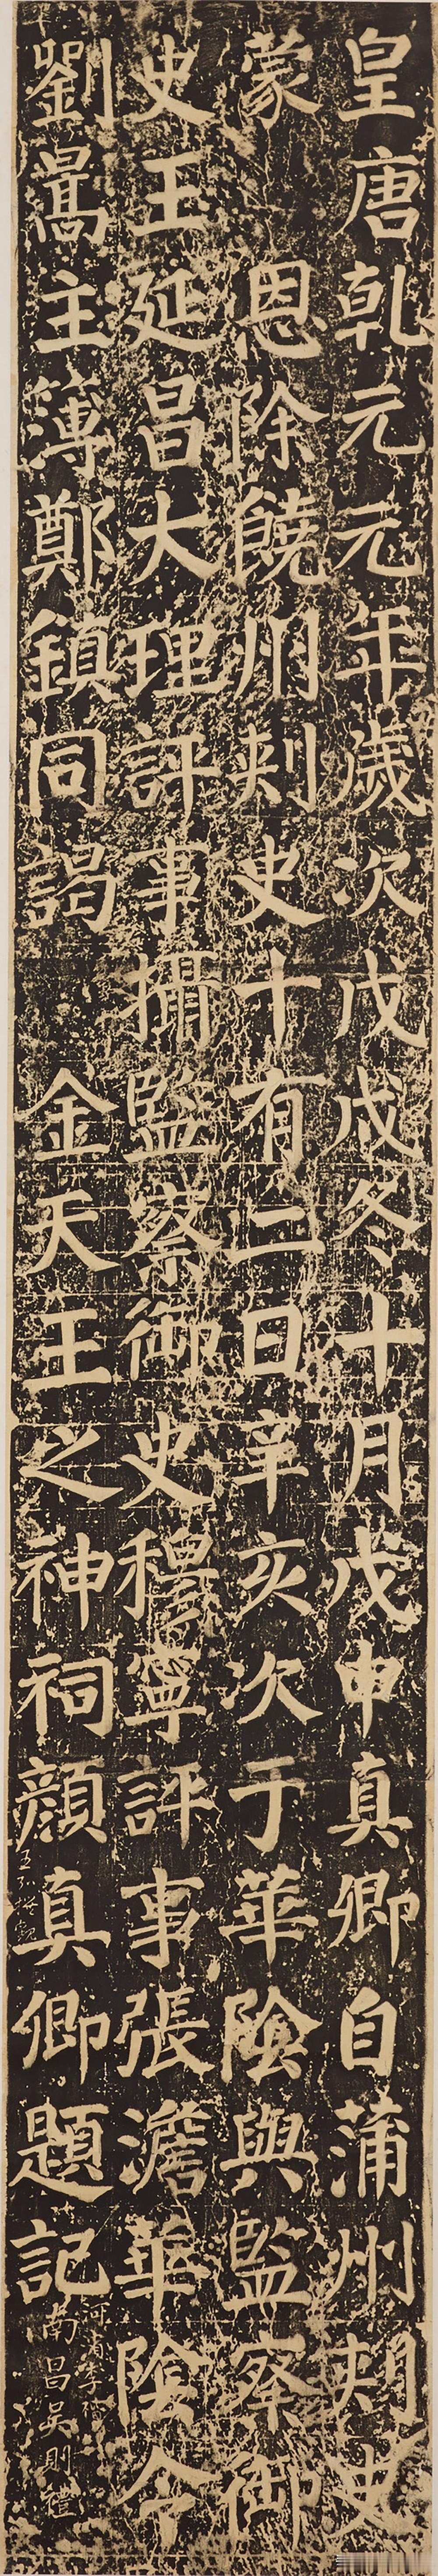 皇唐乾元元年歲次戊戌冬十月戊申真卿自蒲州刺史
蒙恩除饒州刺史十有二日辛亥次于華陰與監察御
史王延昌大理評事攝監察御史穆寧評事張澹華陰令
劉暠主簿鄭鎮同謁金天王之神祠顏真卿題記
南昌吳則禮